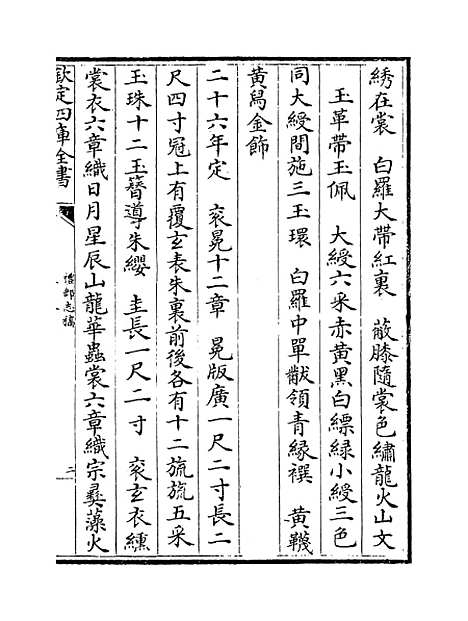 綉在裳　白羅大帶紅裏　蔽膝隨裳色繡龍火山文
玉革帶玉佩　大綬六采赤黄黑白縹緑小綬三色
同大綬間施三玉環　白羅中單黻領青緣襈　黄韈
黄舄金飾
二十六年定　衮冕十二章　冕版廣一尺二寸長二
尺四寸冠上有覆玄表朱裏前後各有十二旒旒五采
玉珠十二玉簪導朱纓　圭長一尺二寸　衮玄衣纁
裳衣六章織日月星辰山龍華蟲裳六章織宗彝藻火
欽定四庫全書
禮部志稿
二